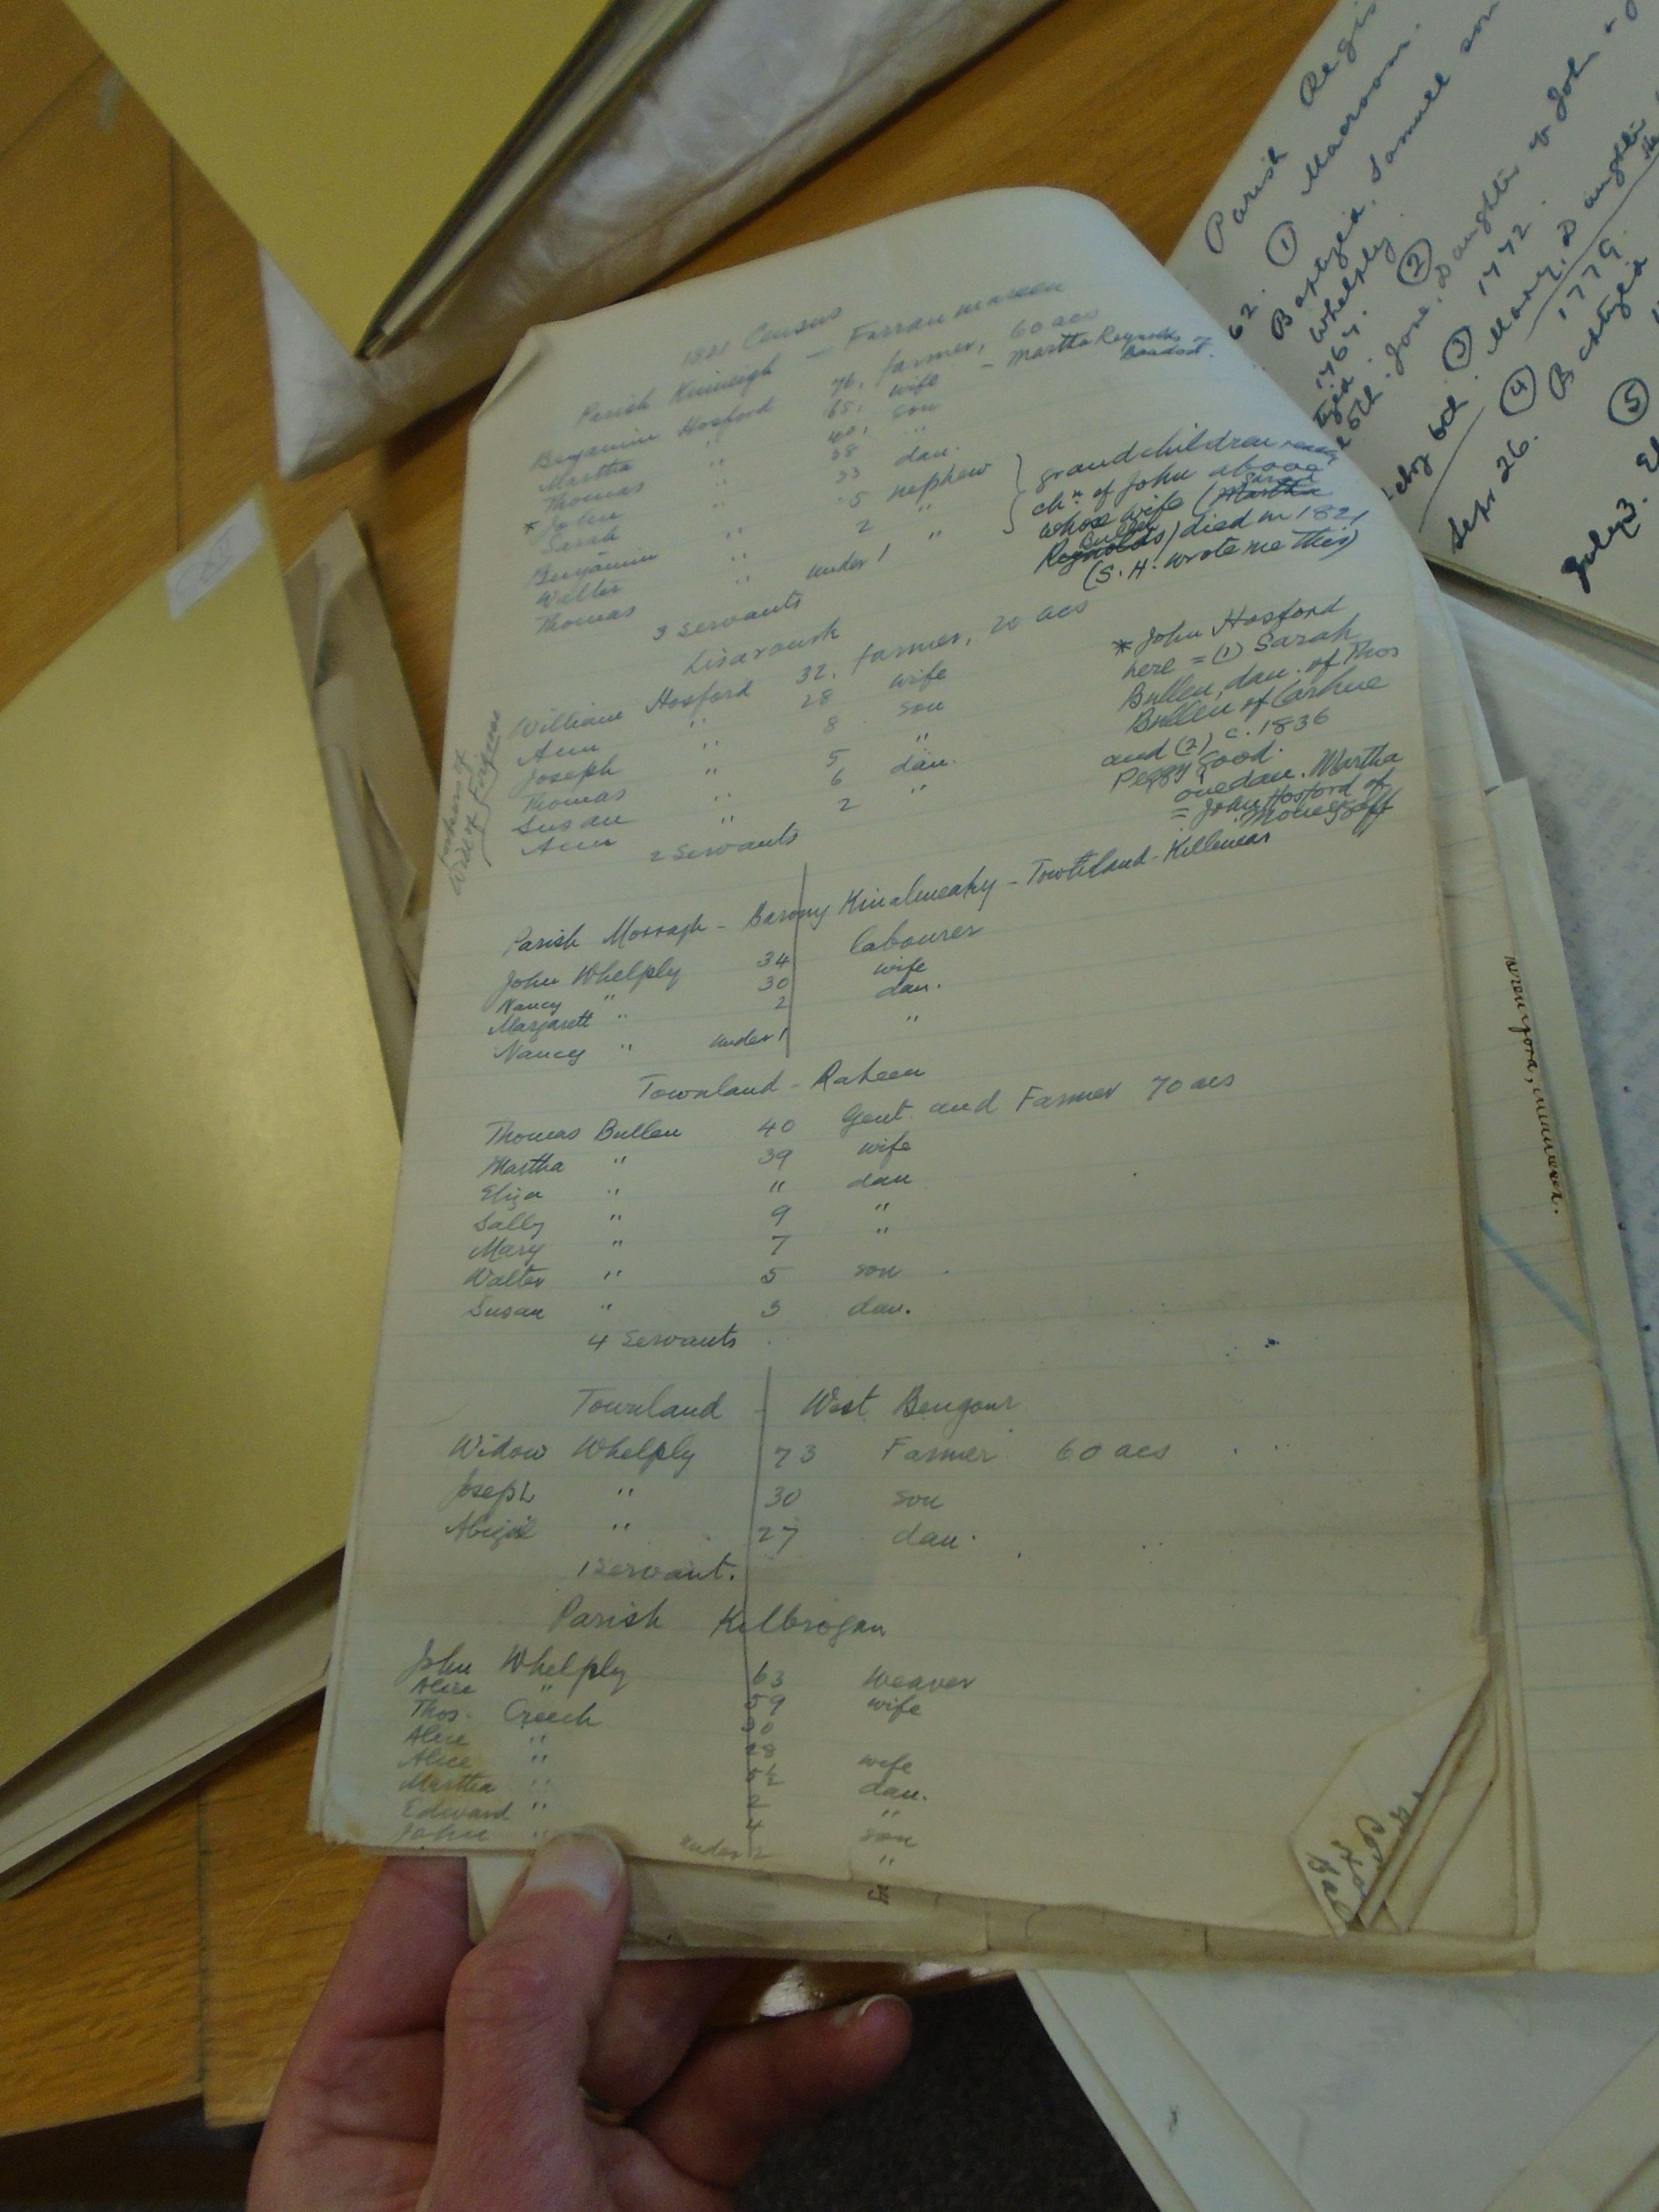 1821 Census
Parish Kinneigh - Farranmareen
Benjamin Hosford 76, farmer, 60 acs
Martha " 65, wife - Martha Reynolds of Bandon.
Thomas " 40, son
* John " 38 "
Sarah " 33 dan.
Benjamin " 5 nephew
Walter " 2 "
Thomas " under 1 "
grandchildren really
chn of John above
whose wife (Martha Sarah
Reynolds Bullen) died in 1821
(S. H. wrote me this)
3 servants
Lisaroursh
William Hosford 32, farmer, 20 acs
Ann " 28 wife
Joseph " 8 son
Thomas " 5 "
Susan " 6 dau.
Ann " 2 "
2 servants
Will of
* John Hosford
here = (1) Sarah
Bullen, dau. of Thos
Bullen of Corhue
and (2) c. 1836
Peggy Good.
one dau. Martha
= John Hosford of
Moneygaff
Parish Morragh - Barony Kinalmeaky - Townland - Killenear
John Whelply 34 labourer
Nancy " 30 wife
Margarett " 2 dau.
Nancy " under 1 "
Townland - Raheen
Thomas Bullen 40 Gent. and Farmer 70 acs
Martha " 39 wife
Eliza " 11 dau
Sally " 9 "
Mary " 7 "
Walter " 5 son
Susan " 3 dau.
4 Servants
Townland - West Bengour
Widow Whelply 73 Farmer 60 acs
Joseph " 30 son
Abigil " 27 dau.
1 Servant.
Parish Kilbrogan
John Whelply 63 weaver
Alice " 59 wife
Thos. Creech 30
Alice " 28 wife
Alice " dau.
Martha " 2 "
Edward " 4 son
John " under 2 "
Parish Regis
62. ① Macroom.
Baptized, Samuell son
Whelply.
1767. ②
5th. Jane, Daughter of John
1772.
6th. ③ Mary, Daughter
1779.
Sept 26. ④ Baptized
July 3. ⑤